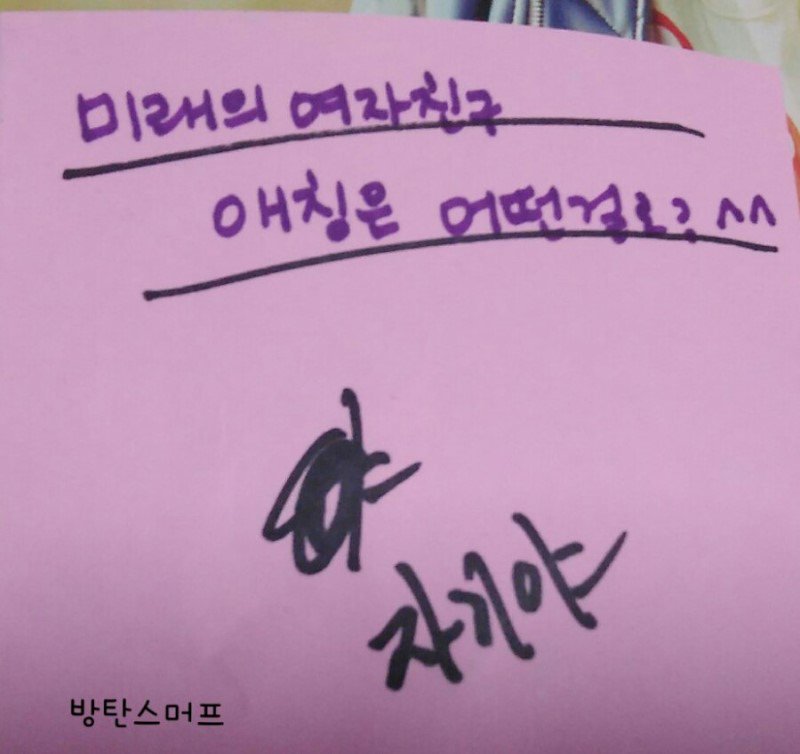 미래의 여자친구
애칭은 어떤걸로? ^^
자기야
방탄스머프